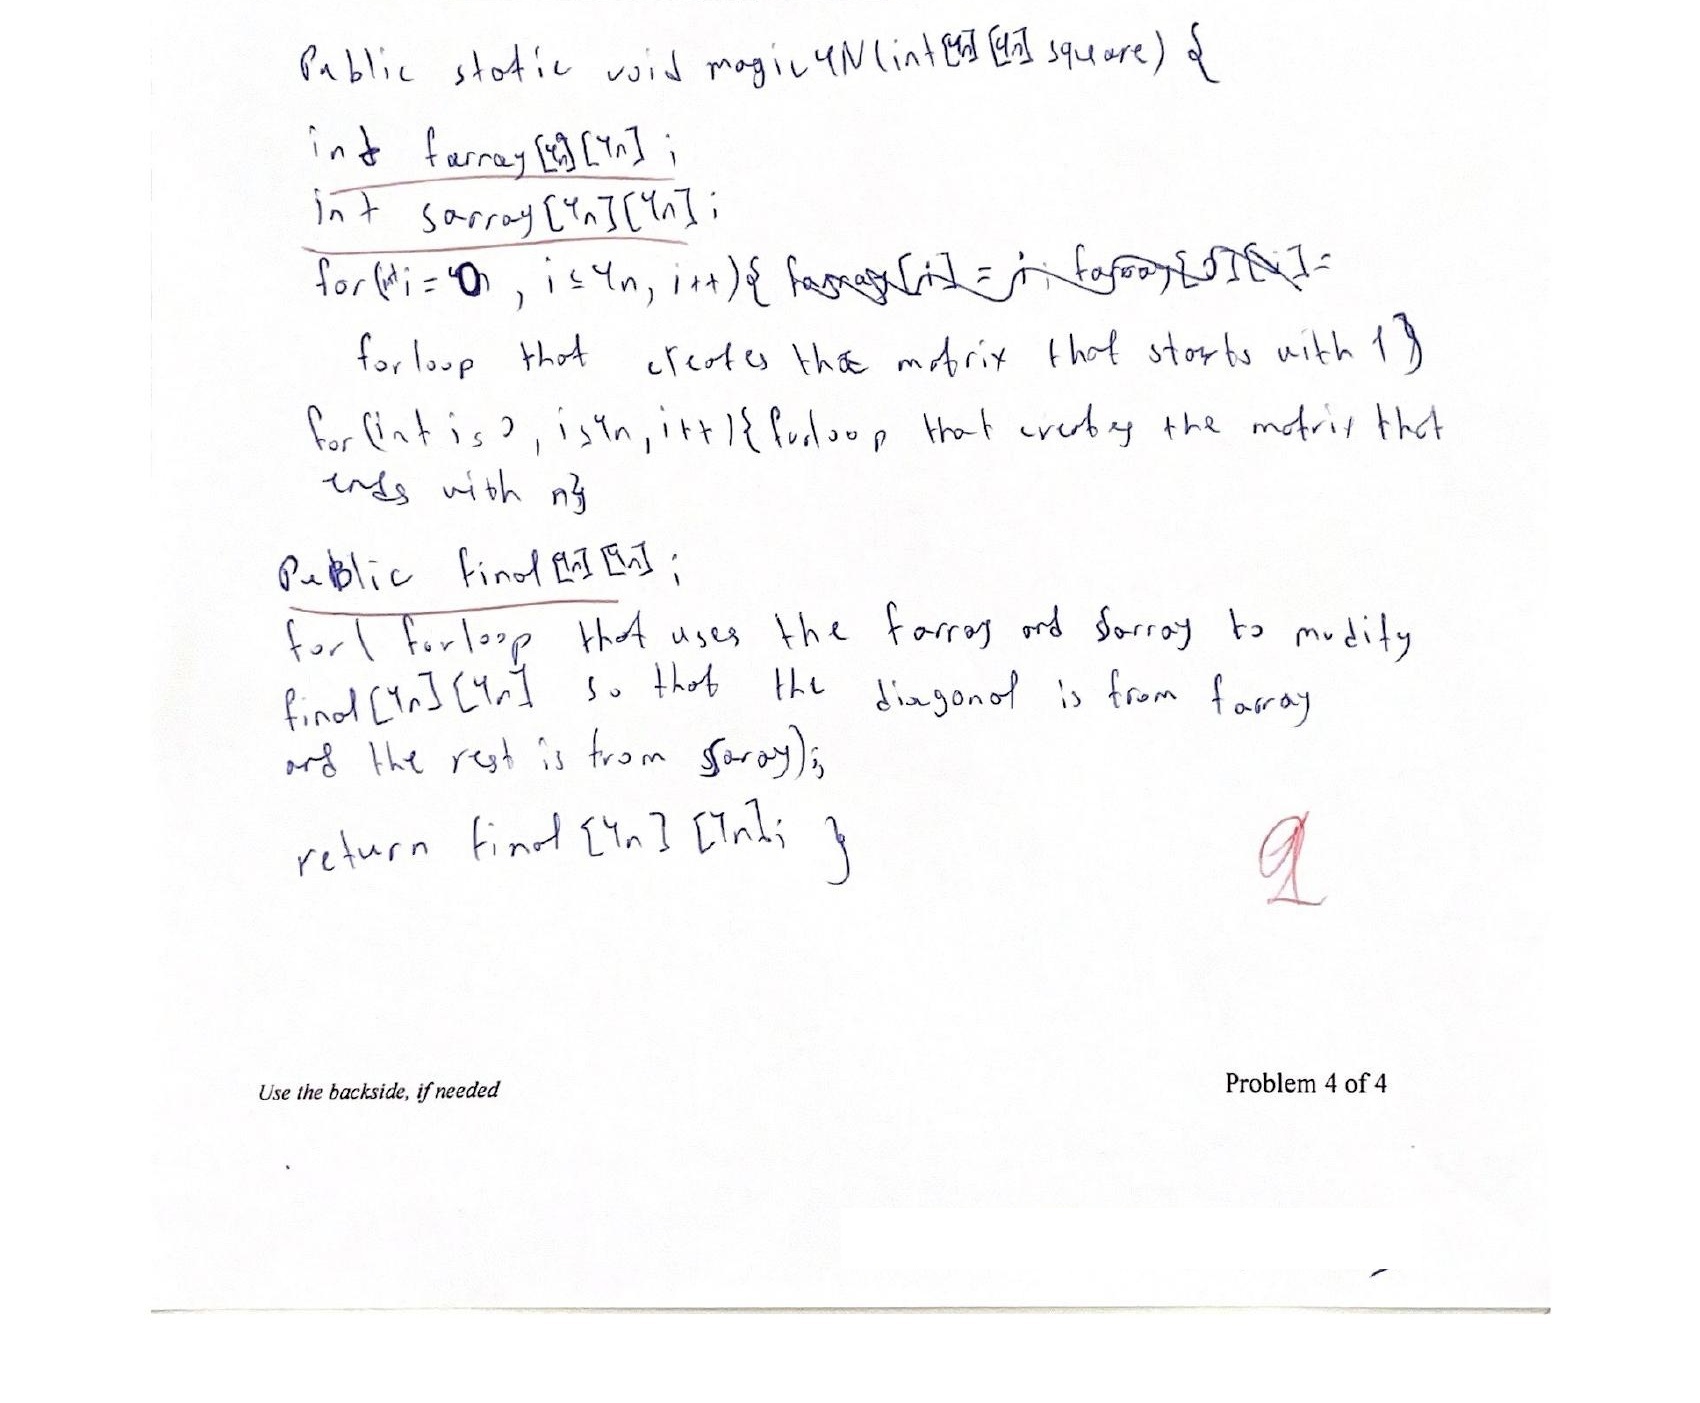 Public static void magic4N(int[4n][4n] square) {
int farray[4n][4n];
int sarray[4n][4n];
for(int i=0, i≤4n, i++){
for loop that creates the matrix that starts with 1}
for(int i=0, i≤4n, i++){forloop that creates the matrix that
ends with n}
Public final[4n][4n];
for( forloop that uses the farray and sarray to modify
final[4n][4n] so that the diagonal is from farray
and the rest is from sarray);
return final[4n][4n]; }
9
Use the backside, if needed
Problem 4 of 4